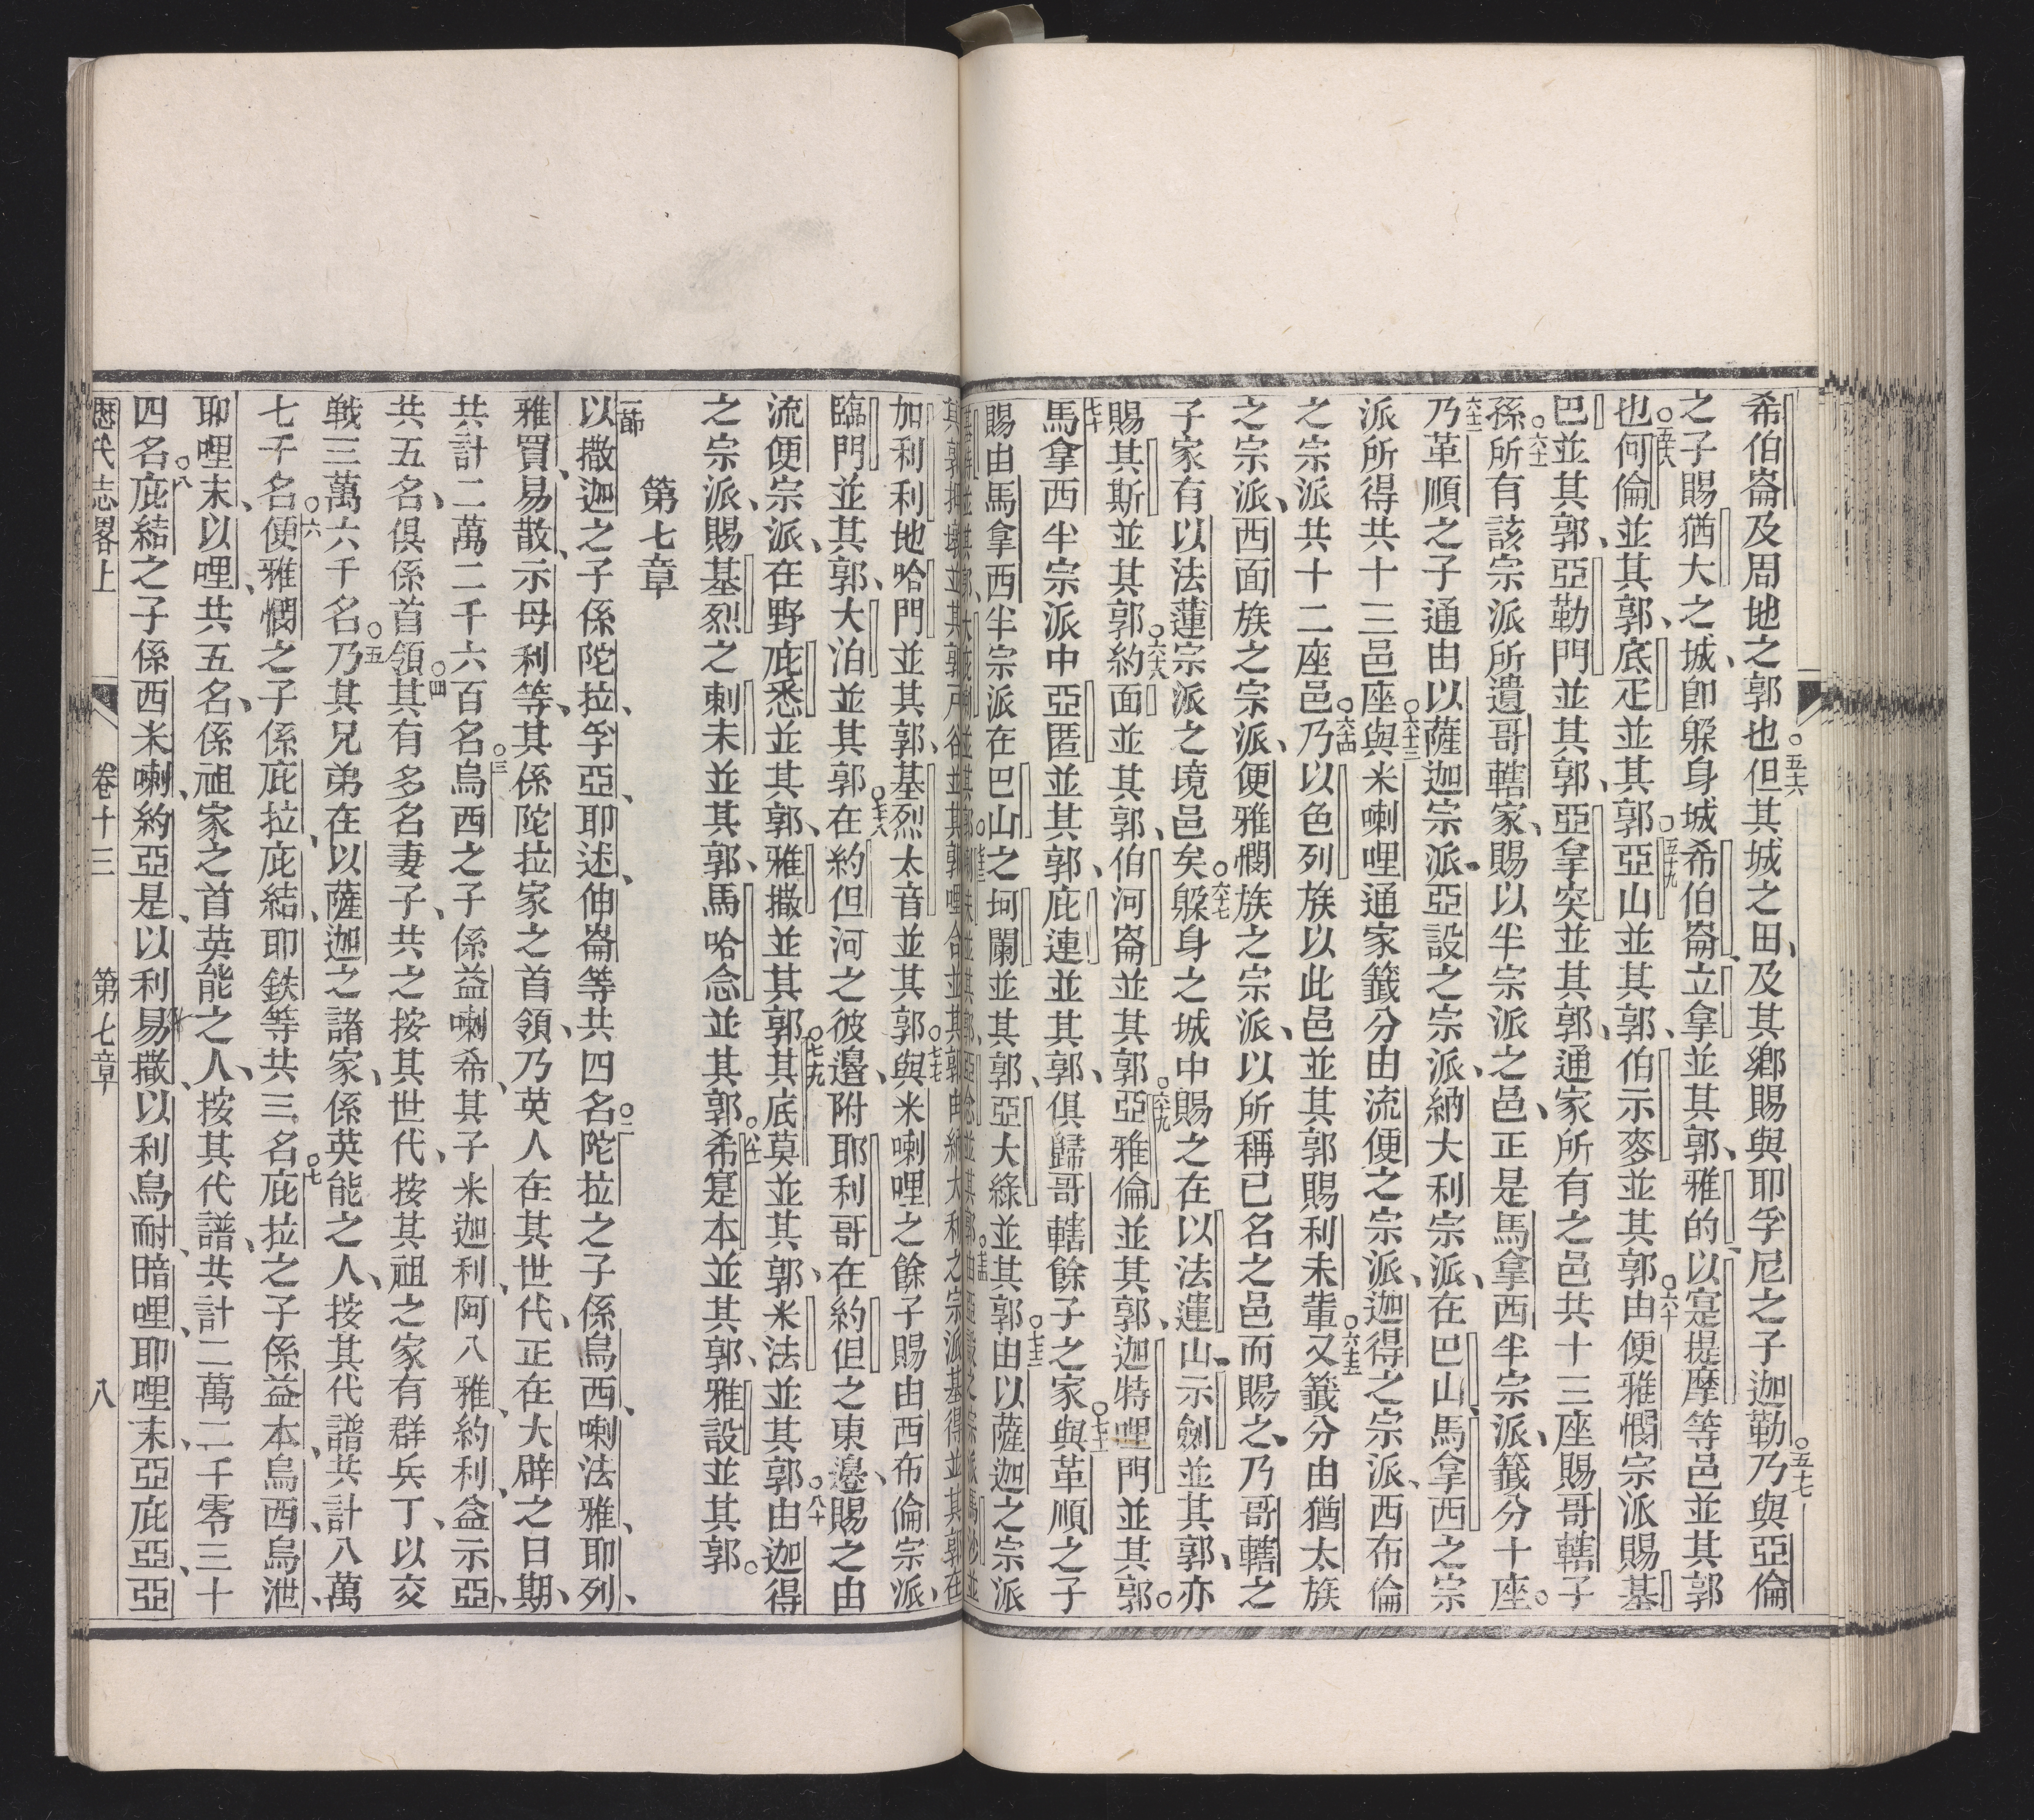 希伯崙及周地之郭也○五十六但其城之田、及其鄉賜與耶孚尼之子迦勒○五十七乃與亞倫
之子賜猶大之城、卽躲身城希伯崙、立拿並其郭、雅的、以寔提摩等邑並其郭
○五十八也何倫並其郭、底疋並其郭○五十九亞山並其郭、伯示麥並其郭○六十由便雅憫宗派賜基
巴並其郭、亞勒門並其郭、亞拿突並其郭、通家所有之邑共十三座賜哥轄子
孫○六十一所有該宗派所遺哥轄家、賜以半宗派之邑、正是馬拿西半宗派、籤分十座。
六十二乃革順之子通由以薩迦宗派、亞設之宗派、納大利宗派、在巴山、馬拿西之宗
派所得共十三邑座○六十三與米喇哩通家籤分由流便之宗派、迦得之宗派、西布倫
之宗派共十二座邑○六十四乃以色列族以此邑並其郭賜利未輩○六十五又籤分由猶太族
之宗派、西面族之宗派、便雅憫族之宗派、以所稱已名之邑而賜之、乃哥轄之
子家有以法蓮宗派之境邑矣○六十七躲身之城中賜之在以法蓮山、示劍並其郭、亦
賜其斯並其郭○六十八約面並其郭、伯河崙並其郭○六十九亞雅倫並其郭、迦特哩門並其郭。
七十馬拿西半宗派中亞匿並其郭、庇連並其郭、俱歸哥轄餘子之家○七十一與革順之子
賜由馬拿西半宗派在巴山之坷闌並其郭、亞大綠並其郭○七十二由以薩迦之宗派
加利利地哈門並其郭、基烈太音並其郭○七十七與米喇哩之餘子賜由西布倫宗派、
臨門並其郭、大泊並其郭○七十八在約但河之彼邊、附耶利哥在約但之東邊、賜之由
流便宗派、在野庇悉並其郭、雅撒並其郭○七十九其底莫並其郭、米法並其郭○八十由迦得
之宗派、賜基烈之剌未並其郭、馬哈念並其郭○八十一希寔本並其郭、雅設並其郭。
第七章
一節以撒迦之子係陀拉、孚亞、耶述、伸崙等共四名○二陀拉之子係烏西、喇法雅、耶列、
雅買、易散、示母利等、其係陀拉家之首領、乃英人在其世代、正在大辟之日期、
共計二萬二千六百名○三烏西之子係益喇希、其子米迦利、阿八雅、約利、益示亞、
共五名、俱係首領○四其有多名妻子、共之按其世代、按其祖之家有群兵丁、以交
戰三萬六千名○五乃其兄弟在以薩迦之諸家、係英能之人、按其代譜共計八萬
七千名○六便雅憫之子係庇拉、庇結、耶鉄等共三名○七庇拉之子係益本、烏西、烏泄、
耶哩末、以哩、共五名、係祖家之首英能之人、按其代譜、共計二萬二千零三十
四名○八庇結之子係西米喇、約亞是、以利易撒、以利烏耐、暗哩、耶哩末、亞庇亞、亞
歷代志畧上 卷十三 第七章 八